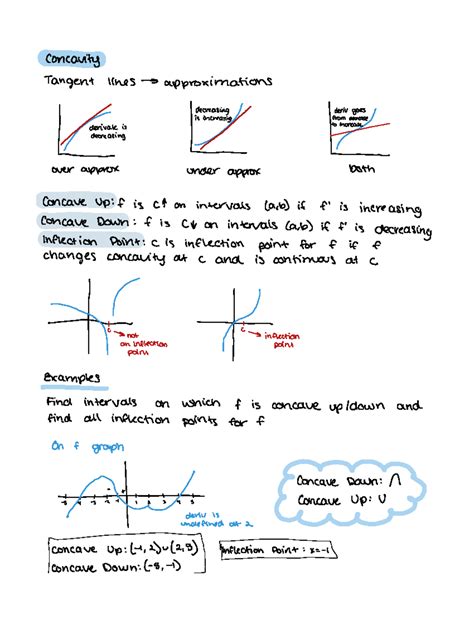 Concavity
Tangent lines → approximations
derivate is
decreasing
decreasing
is increasing
deriv goes
from decrease
to increase
over approx
under approx
both
Concave Up: f is C↑ on intervals (a,b) if f' is increasing
Concave Down: f is C↓ on intervals (a,b) if f' is decreasing
Inflection Point: c is inflection point for f if f
changes concavity at c and is continuous at c
c
→ not
an inflection
point
c
→ inflection
point
Examples
Find intervals on which f is concave up/down and
find all inflection points for f
On f graph
deriv is
undefined at 2
Concave Down: ∩
Concave Up: ∪
Concave Up: (-1, 2)∪(2,
Concave Down: (
, -1)
Inflection Point: x=-1